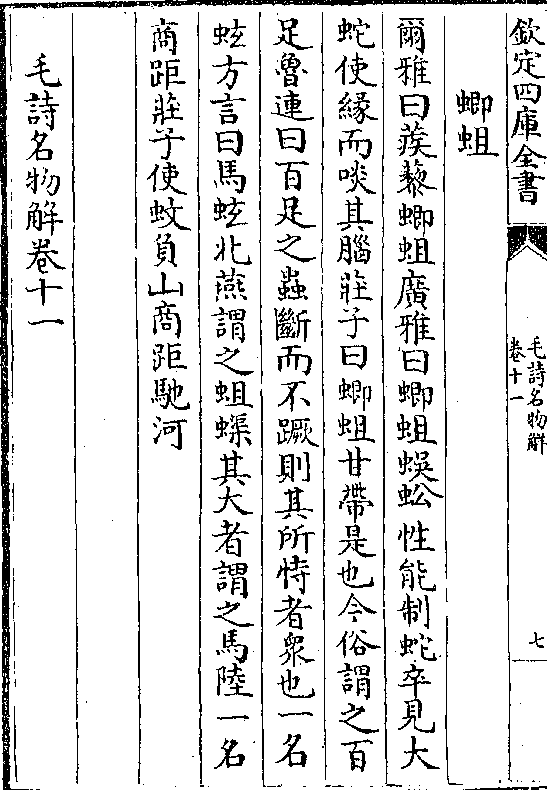 欽定四庫全書
毛詩名物解
卷十一
七
蝍蛆
爾雅曰蒺藜蝍蛆廣雅曰蝍蛆蜈蚣性能制蛇卒見大
蛇使緣而啖其腦莊子曰蝍蛆甘帶是也今俗謂之百
足魯連曰百足之蟲斷而不蹶則其所恃者衆也一名
蚿方言曰馬蚿北燕謂之蛆蟝其大者謂之馬陸一名
商距莊子使蚊負山商距馳河
毛詩名物解卷十一